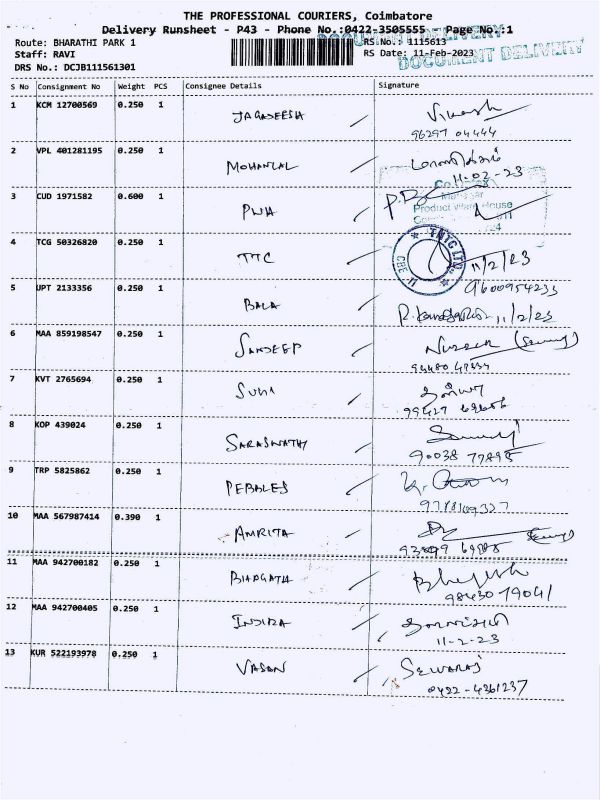 THE PROFESSIONAL COURIERS, Coimbatore
Delivery Runsheet - P43 - Phone No.:0422-3505555 - Page No.:1
DOCUMENT DELIVERY
DOCUMENT DELIVERY
Route: BHARATHI PARK 1
RS No.: 1115613
Staff: RAVI
RS Date: 11-Feb-2023
DRS No.: DCJB111561301
S No Consignment No Weight PCS Consignee Details Signature
1 KCM 12700569 0.250 1 JAGADEESH Vikash
96297 04444
2 VPL 401281195 0.250 1 MOHANLAL
11-02-23
3 CUD 1971582 0.600 1 PWA P.D
Manager
Product Ware House
4 TCG 50326820 0.250 1 TTC 11/2/23
TNTC LTD
CBE 11
9600954233
5 UPT 2133356 0.250 1 BALA 11/2/23
6 MAA 859198547 0.250 1 SANDEEP
7 KVT 2765694 0.250 1 SUMI
99427
8 KOP 439024 0.250 1 SARASWATHY
90038 77898
9 TRP 5825862 0.250 1 PEBBLES
10 MAA 567987414 0.390 1 AMRITA
11 MAA 942700182 0.250 1 BHAGATH
98430 79041
12 MAA 942700405 0.250 1 INDIRA
11-2-23
13 KUR 522193978 0.250 1 VASAN SELVARAJ
0422-4361237